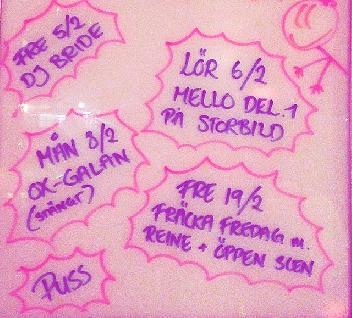 FRE 5/2
DJ BRIDE
LÖR 6/2
MELLO DEL.1
PÅ STORBILD
MÅN 8/2
OX-GALAN
(stänger)
FRE 19/2
FRÄCKA FREDAG m.
REINE + ÖPPEN SCEN
PUSS